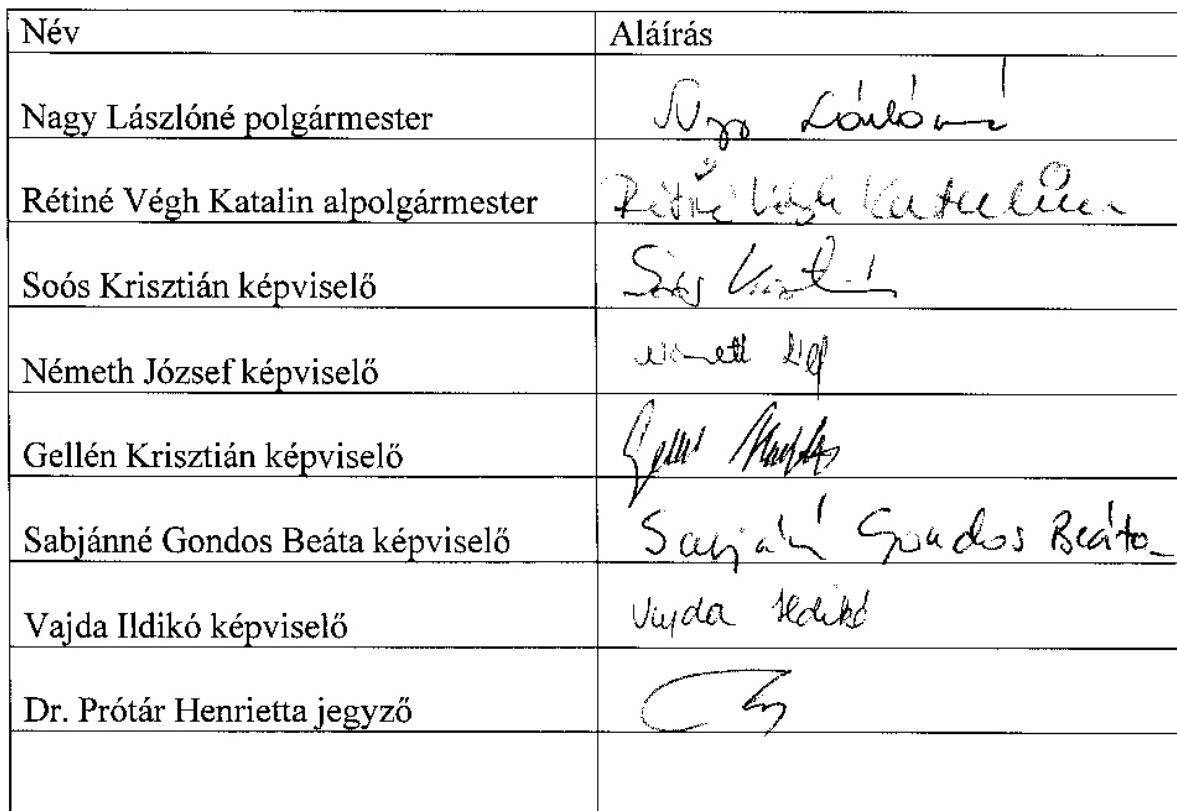 Név Aláírás
Nagy Lászlóné polgármester
Rétiné Végh Katalin alpolgármester Rétiné Végh Katalin
Soós Krisztián képviselő
Németh József képviselő
Gellén Krisztián képviselő
Sabjánné Gondos Beáta képviselő Gondos Beáta
Vajda Ildikó képviselő Vajda Ildikó
Dr. Prótár Henrietta jegyző